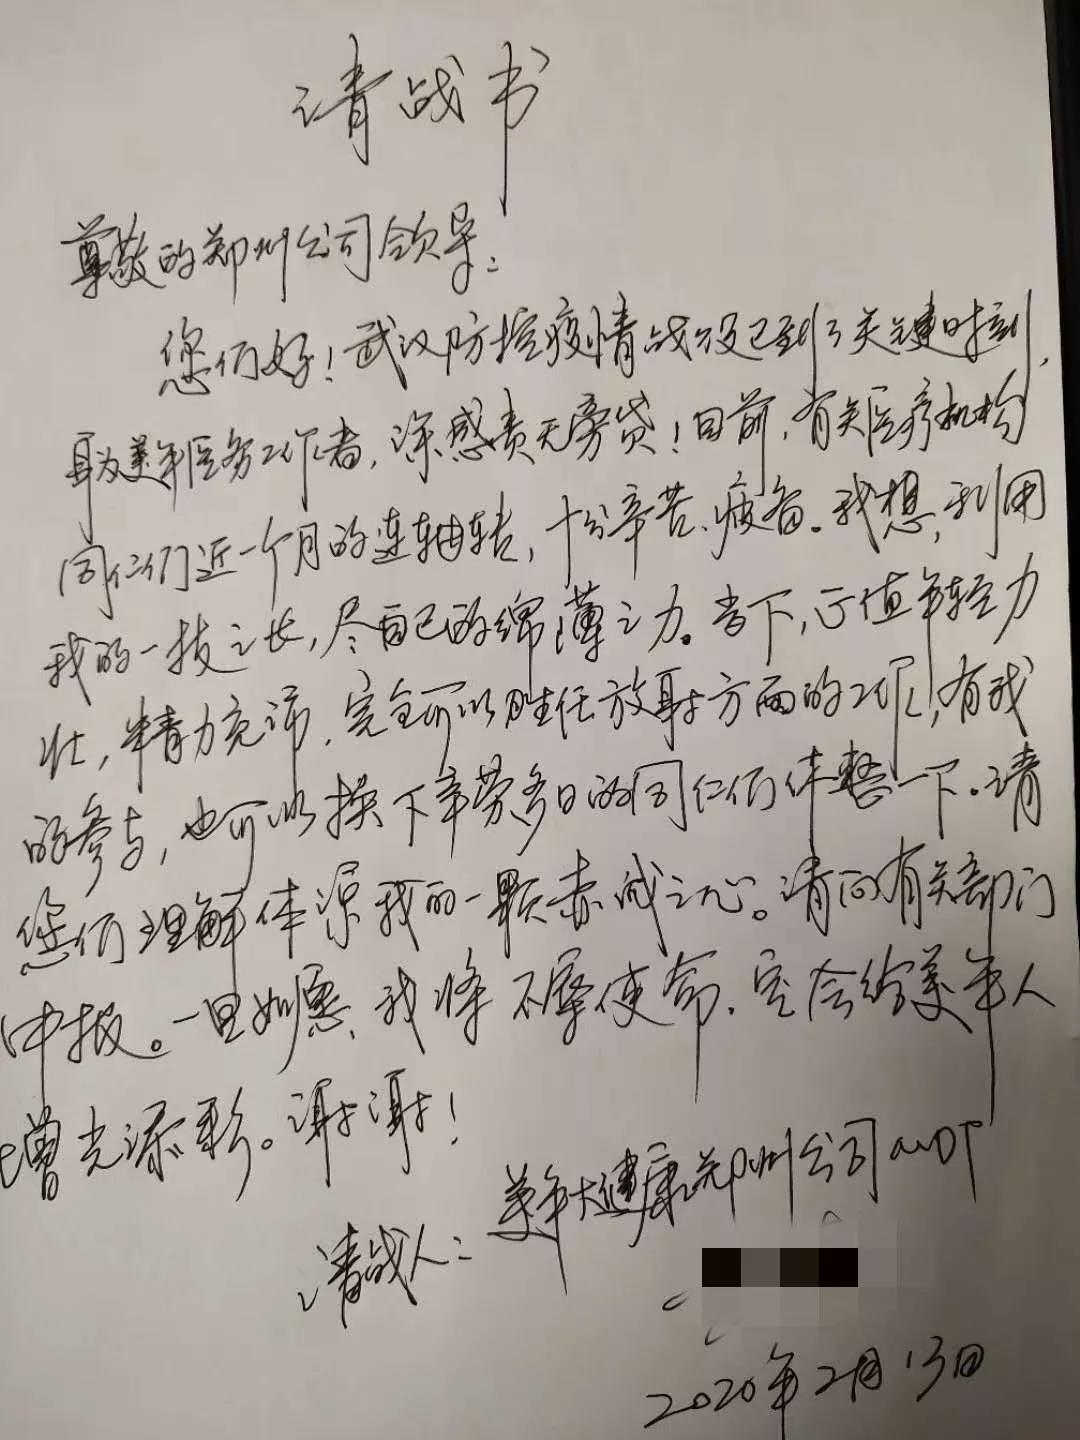 请战书
尊敬的郑州公司领导：
您们好！武汉防控疫情战役已到了关键时刻，
身为美年医务工作者，深感责无旁贷！目前，有关医疗机构
同仁们近一个月的连轴转，十分辛苦、疲惫。我想，利用
我的一技之长，尽自己的绵薄之力。当下，正值年轻力
壮，精力充沛，完全可以胜任放射方面的工作，有我
的参与，也可以换下辛劳多日的同仁们休整一下。请
您们理解体谅我的一颗赤诚之心。请向有关部门
申报。一旦如愿，我将不辱使命，定会给美年人
增光添彩。谢谢！
请战人：美年大健康郑州公司
2020年2月13日